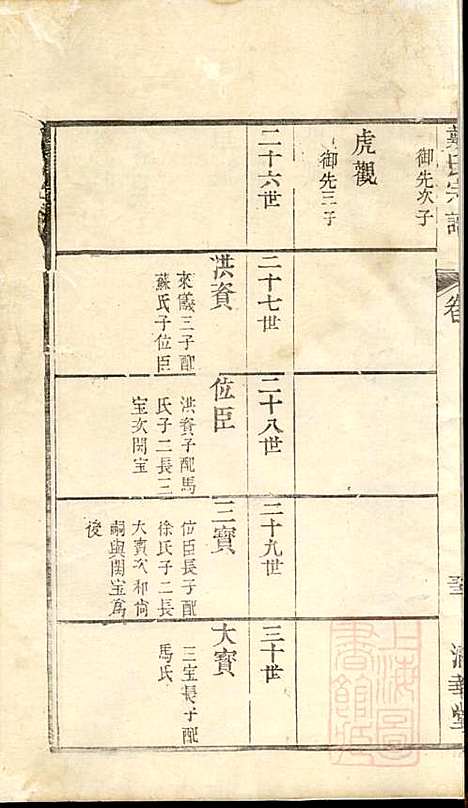 氏宗譜
卷
清華堂
御先次子
虎觀
御先三子
二十六世
二十七世
二十八世
二十九世
三十世
洪資
來儀三子配
蘇氏子位臣
位臣
洪資子配馬
氏子二長三
宝次閏宝
三寶
位臣長子配
徐氏子二長
大賓次和尚
嗣與閏宝爲
後
大賓
三宝長子配
馬氏
上海圖
書館藏